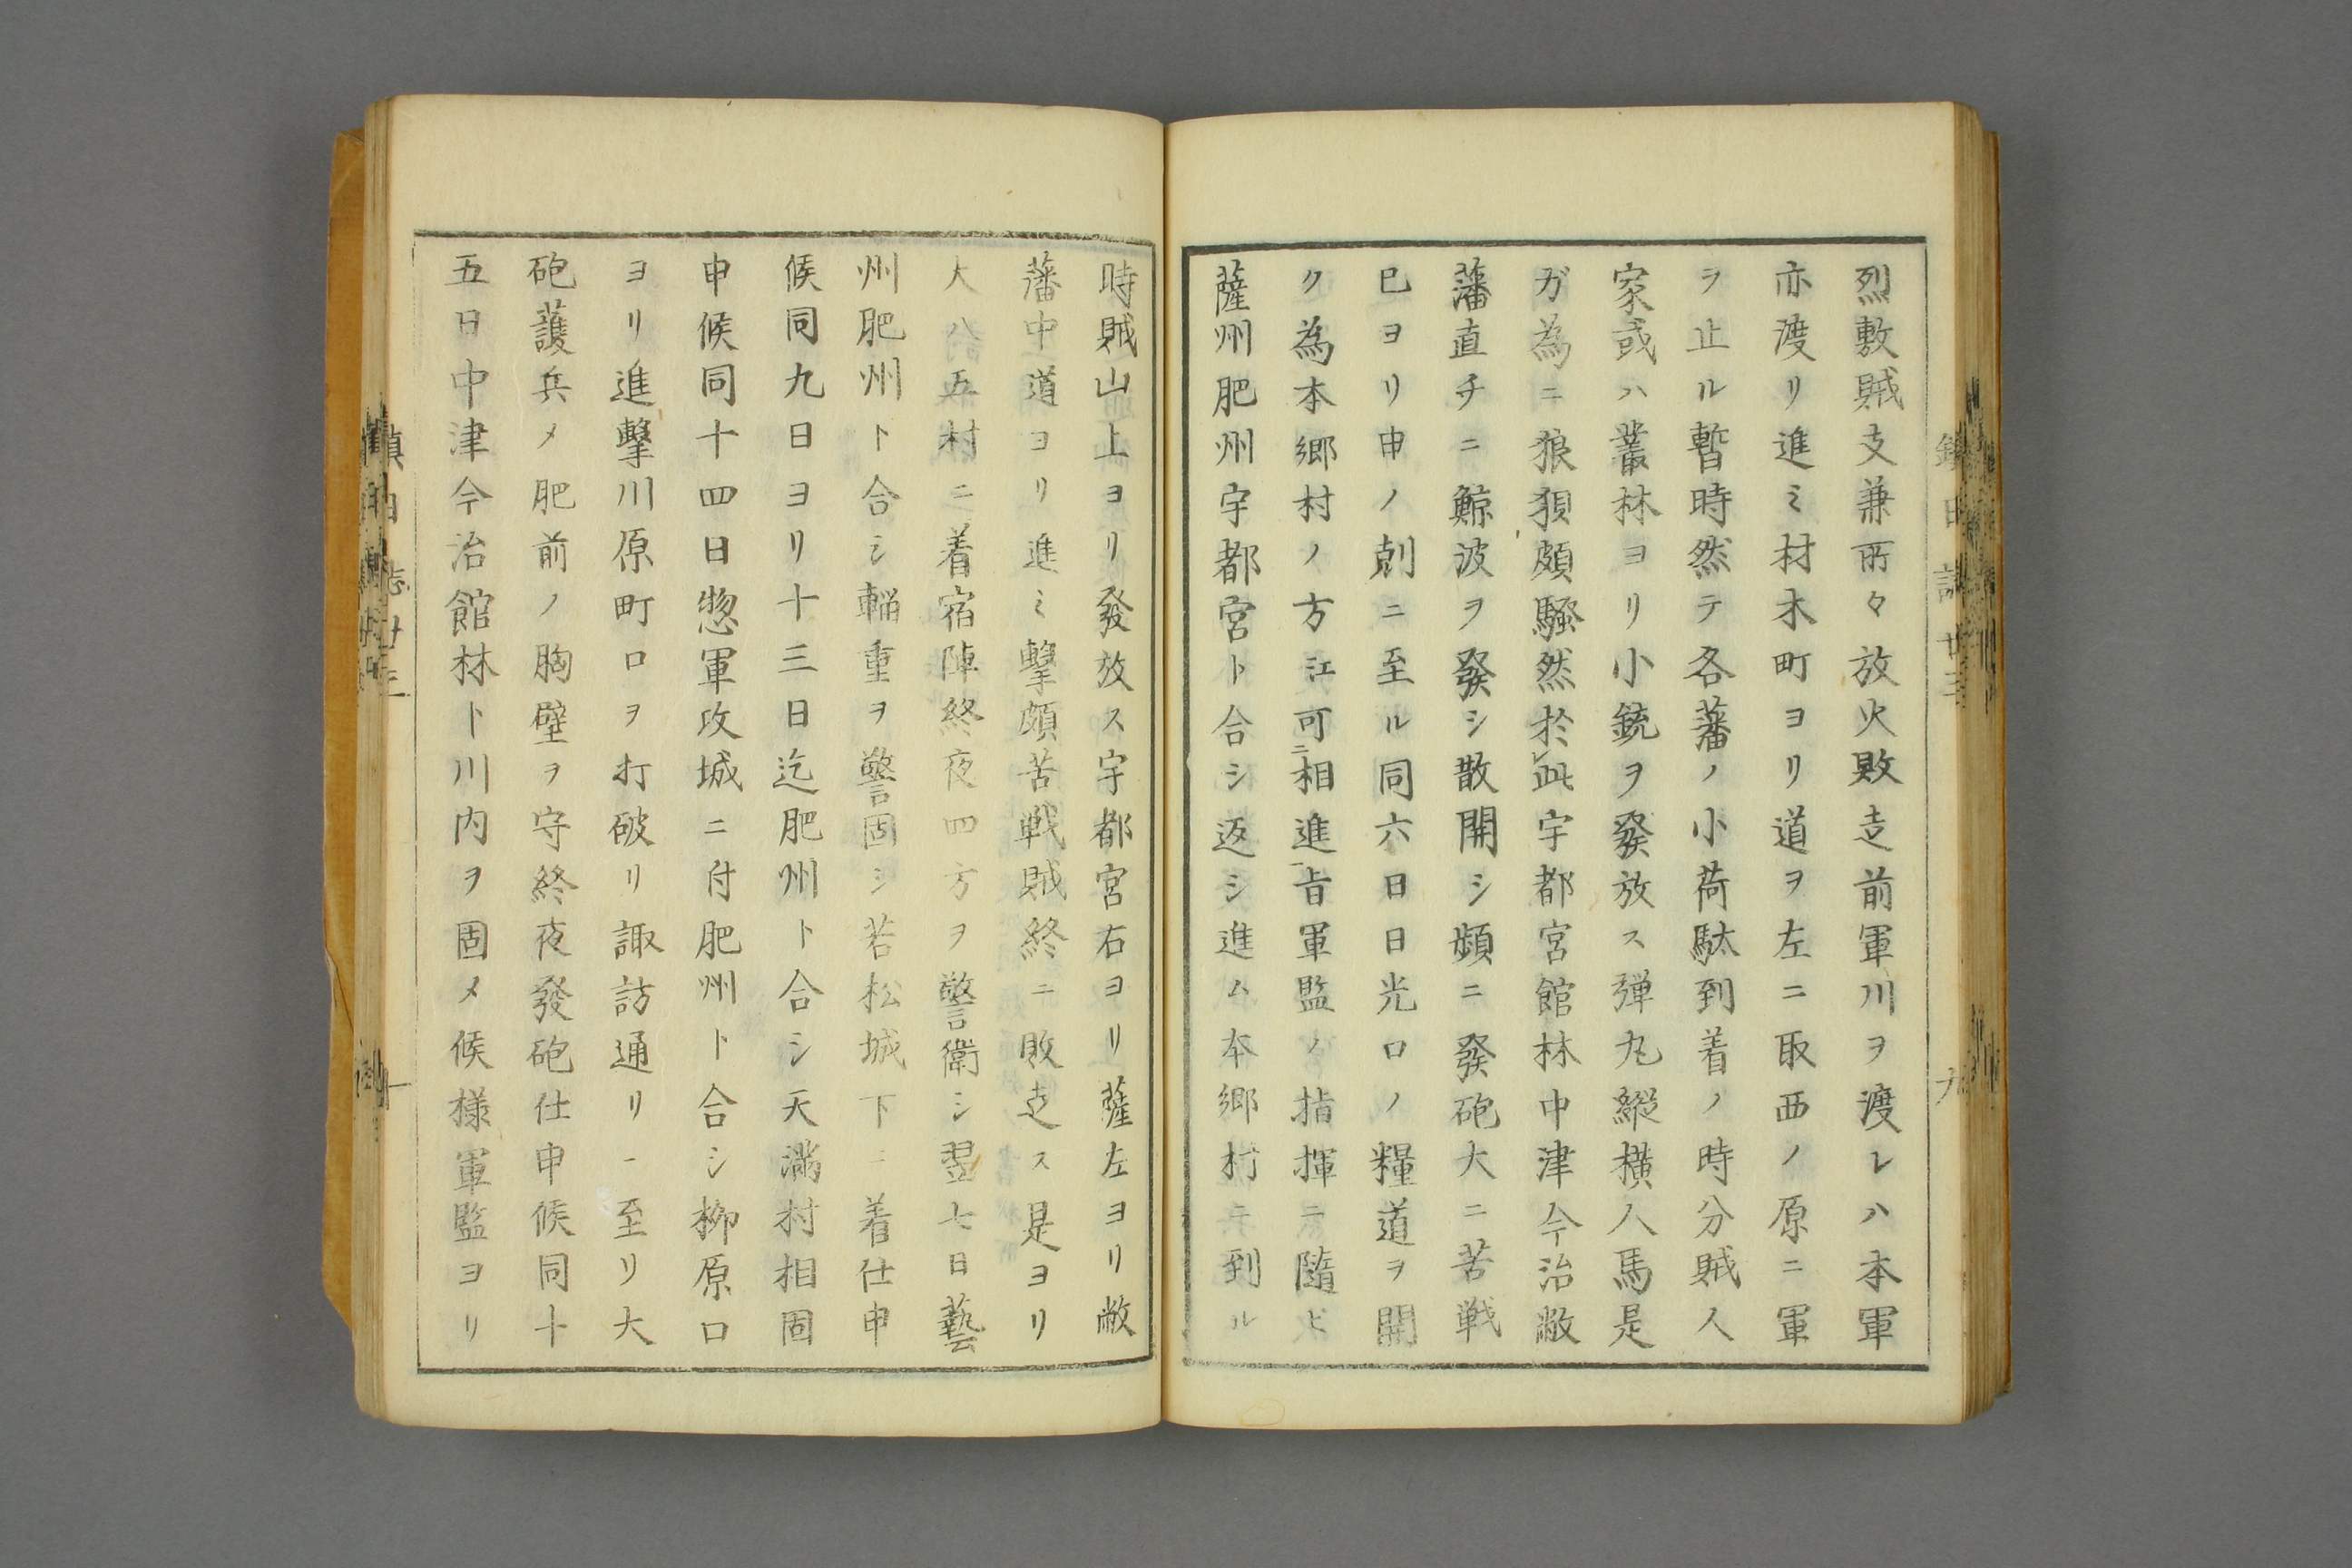 烈敷賊支兼所々放火敗走前軍川ヲ渡レハ本軍
亦渡リ進ミ材木町ヨリ道ヲ左ニ取西ノ原ニ軍
ヲ止ル暫時然テ各藩ノ小荷駄到着ノ時分賊人
家或ハ叢林ヨリ小銃ヲ發放ス弾丸縦横人馬是
ガ為ニ狼狽頗騒然於レ此宇都宮館林中津今治敝
藩直チニ鯨波ヲ發シ散開シ頻ニ發砲大ニ苦戦
巳ヨリ申ノ剋ニ至ル同六日日光口ノ糧道ヲ開
ク為本郷村ノ方江可ニ相進一旨軍監ノ指揮ニ隨ヒ
薩州肥州宇都宮ト合シ返シ進ム本郷村ニ到ル
時賊山上ヨリ發放ス宇都宮右ヨリ薩左ヨリ敝
藩中道ヨリ進ミ擊頗苦戦賊終ニ敗走ス是ヨリ
大八五村ニ着宿陣終夜四方ヲ警衛シ翌七日藝
州肥州ト合シ輜重ヲ警固シ若松城下ニ着仕申
候同九日ヨリ十三日迄肥州ト合シ天満村相固
申候同十四日惣軍攻城ニ付肥州ト合シ柳原口
ヨリ進擊川原町口ヲ打破リ諏訪通リニ至リ大
砲護兵メ肥前ノ胸壁ヲ守終夜發砲仕申候同十
五日中津今治館林ト川内ヲ固メ候様軍監ヨリ
鎮日誌廿三
九